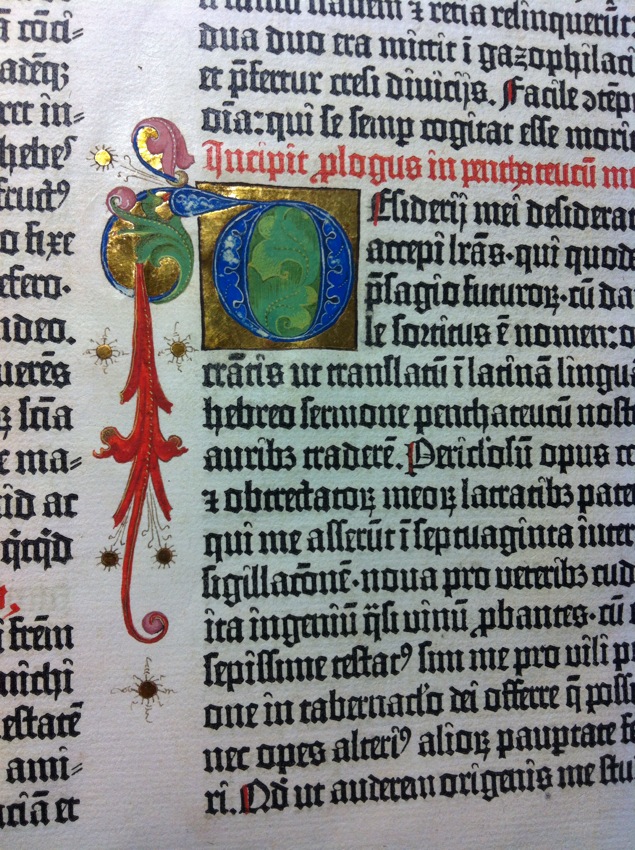 ā cōci⸗
adēqʒ
ret in⸗
hebeſ
ructꝰ
o fixe
efero.
ideo.
uerēs
ꝝ ſcīa
e ma⸗
id ac
qͥcqͥd
i frēm
eſtatē
ami⸗
ciā et
nauem ⁊ retia relinquerūt.
dua duo era mittit ī gazophilaci
et p̄fertur creſi diuicijs. Facile ↄtēp
oīa: qui ſe ſemp cogitat eſſe mori
Incipit ꝓlogus in penthateucū mo
Deſiderij mei deſiderat
accepi lr̄as· qui quod
p̄ſagio futuroꝝ· cū da
le ſortitus ē nomen: o
crātis ut tranſlatū ī latinā lingua
hebreo ſermone penthateucū noſt
auribʒ traderē. Periculoſū opus ce
⁊ obtrectatoꝝ meoꝝ latratibʒ pate
qui me aſſerūt ī ſeptuaginta inter
ſigillatōnē· noua pro veteribʒ cud
ita ingeniū q̄ſi vinū ꝓbantes· cū
ſepiſſime teſtatꝰ ſim me pro vili p
one in tabernac̄lo dei offerre q̄ poſſ
nec opes alteriꝰ alioꝝ pauptate fe
ri. Qd̄ ut auderem origenis me ſtu